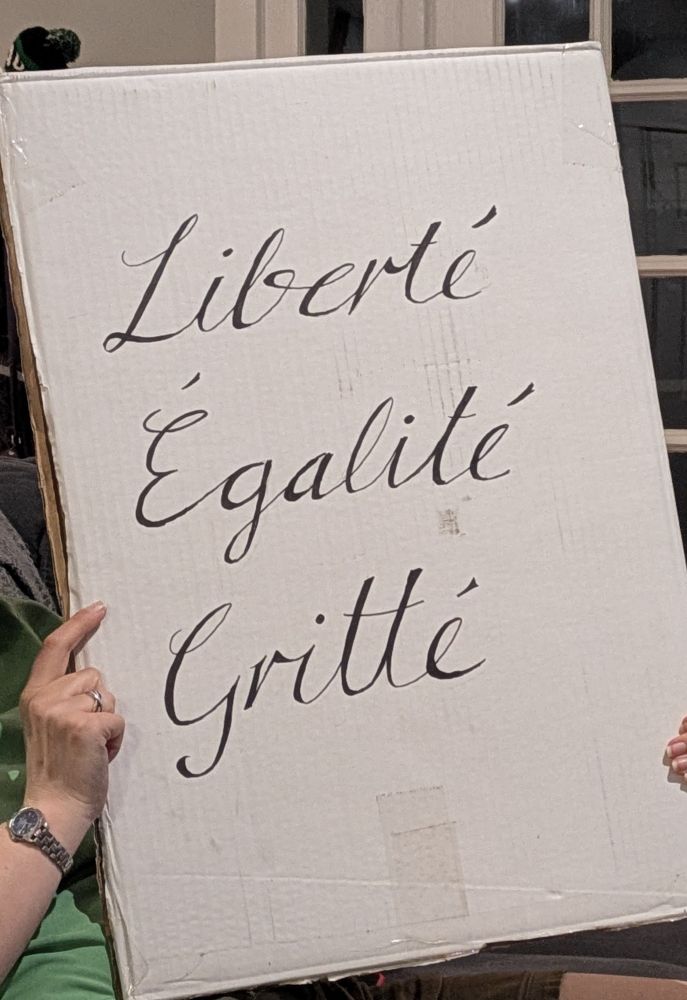 Liberté
Égalité
Gritté